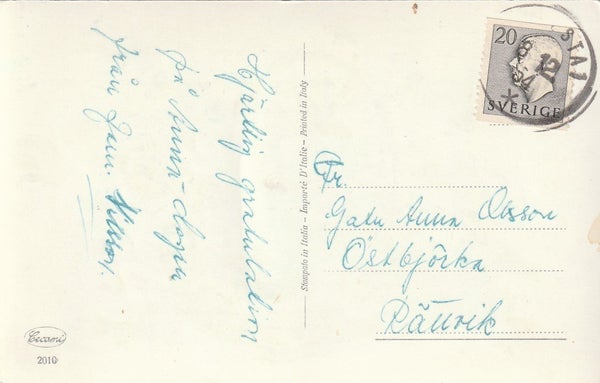 Hjärtlig gratulation
på Anna-dagen
från Fam. Nilsson.
Stampato in Italia – Importé D'Italie – Printed in Italy
Cecami
2010
20
SVERIGE
STAJ
8 12
54
Fr.
Gatu Anna Olsson
Östbjörka
Rättvik